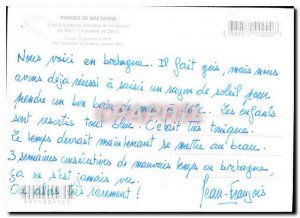 PHARES DE BRETAGNE
Nous voici en bretagne. Il fait gris, mais nous
avons déja réussi à saisir un rayon de soleil pour
prendre un bon bain de mer à 16°C. Les enfants
sont ressortis tout bleu. C'était très tonique.
Le temps devrait maintenant se mettre au beau.
3 semaines consécutives de mauvais temps en bretagne,
ça ne s'est jamais vu.
Ou alors très rarement !
Jean-François